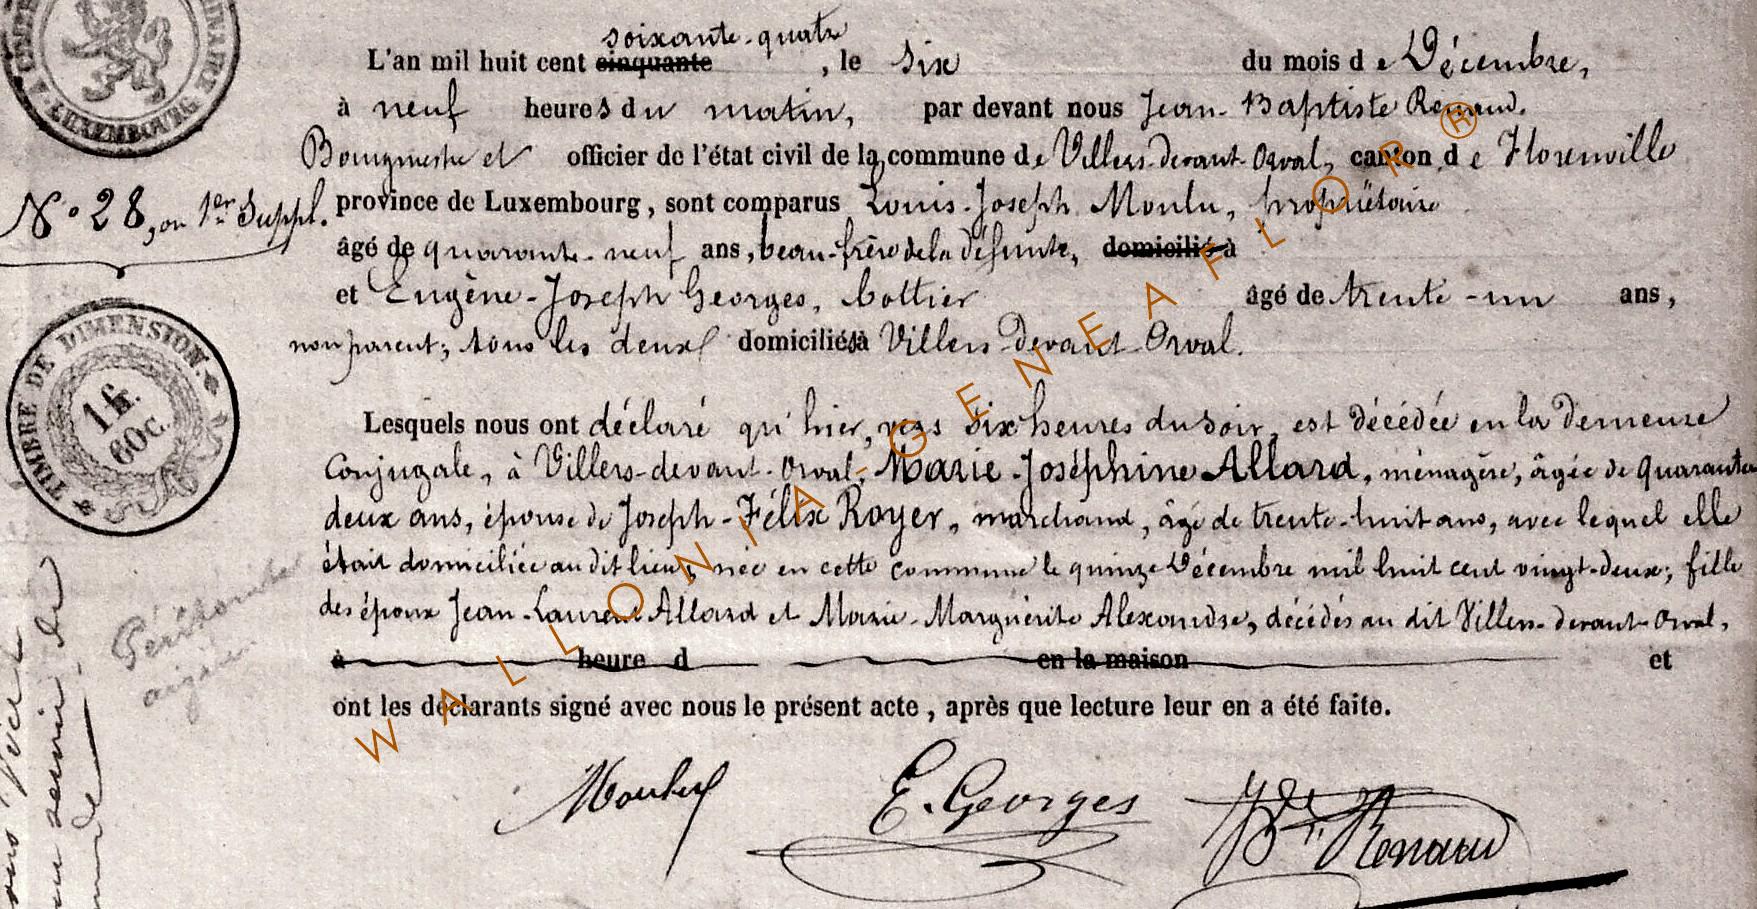 soixante-quatre
L'an mil huit cent cinquante , le six du mois de Décembre,
à neuf heures du matin, par devant nous Jean-Baptiste Renaud.
Bourgmestre et officier de l'état civil de la commune de Villers-devant-Orval, canton de Florenville
N° 28, ou 1er Suppl.
province de Luxembourg, sont comparus Louis-Joseph Moulu, propriétaire
âgé de quarante-neuf ans, beau-frère de la défunte, domicilié à
et Eugène-Joseph Georges, Cottier âgé de trente-un ans,
non parent; tous les deux domiciliés à Villers-Devant-Orval.
TIMBRE DE DIMENSION.
1 fr.
60 c.
Lesquels nous ont déclaré qu'hier, vers six heures du soir, est décédée en la demeure
Conjugale, à Villers-devant-Orval, Marie-Joséphine Allard, ménagère, âgée de quarante
deux ans, épouse de Joseph-Félix Royer, marchand, âgé de trente-huit ans, avec lequel elle
était domiciliée au dit lieu, née en cette commune le quinze Décembre mil huit cent vingt-deux; fille
des époux Jean-Laurent Allard et Marie-Marguérite Alexandre, décédés au dit Villers-devant-Orval,
à heure d en la maison et
ont les déclarants signé avec nous le présent acte, après que lecture leur en a été faite.
Moulu E. Georges JBte Renaud
LUXEMBOURG
WALLONIA-GENEAFLOR®